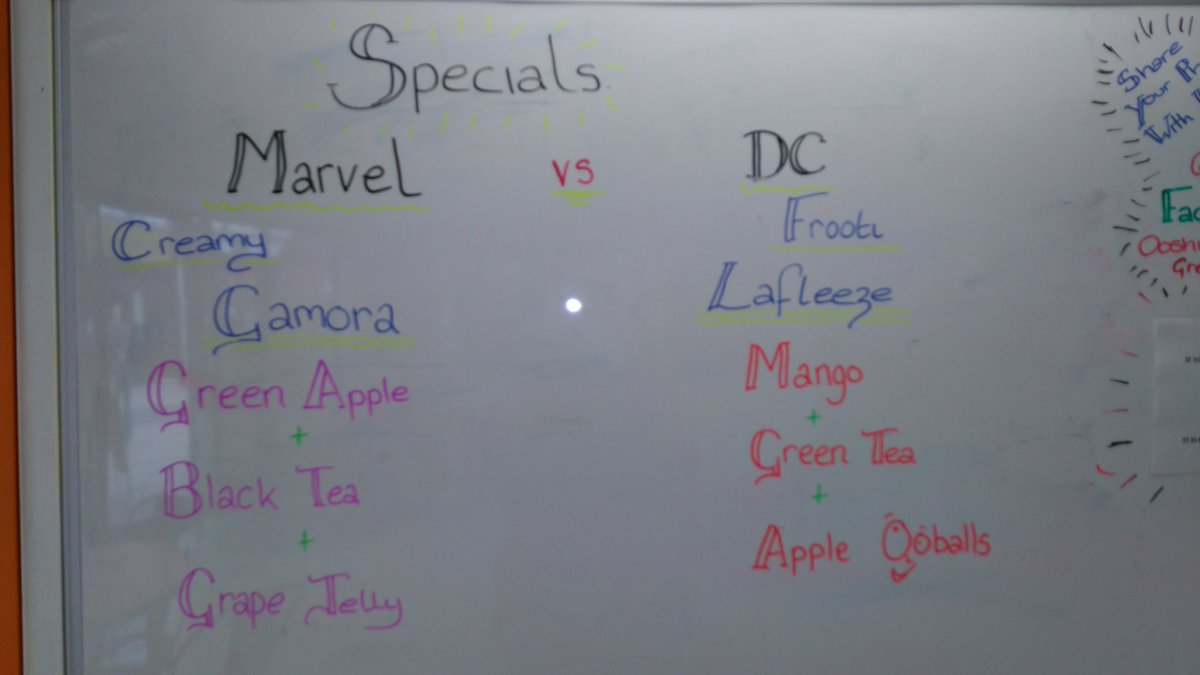 Specials
Marvel vs DC
Creamy
Gamora
Green Apple
+
Black Tea
+
Grape Jelly
Frooti
Lafleeze
Mango
+
Green Tea
+
Apple Ooballs
Share
your
With